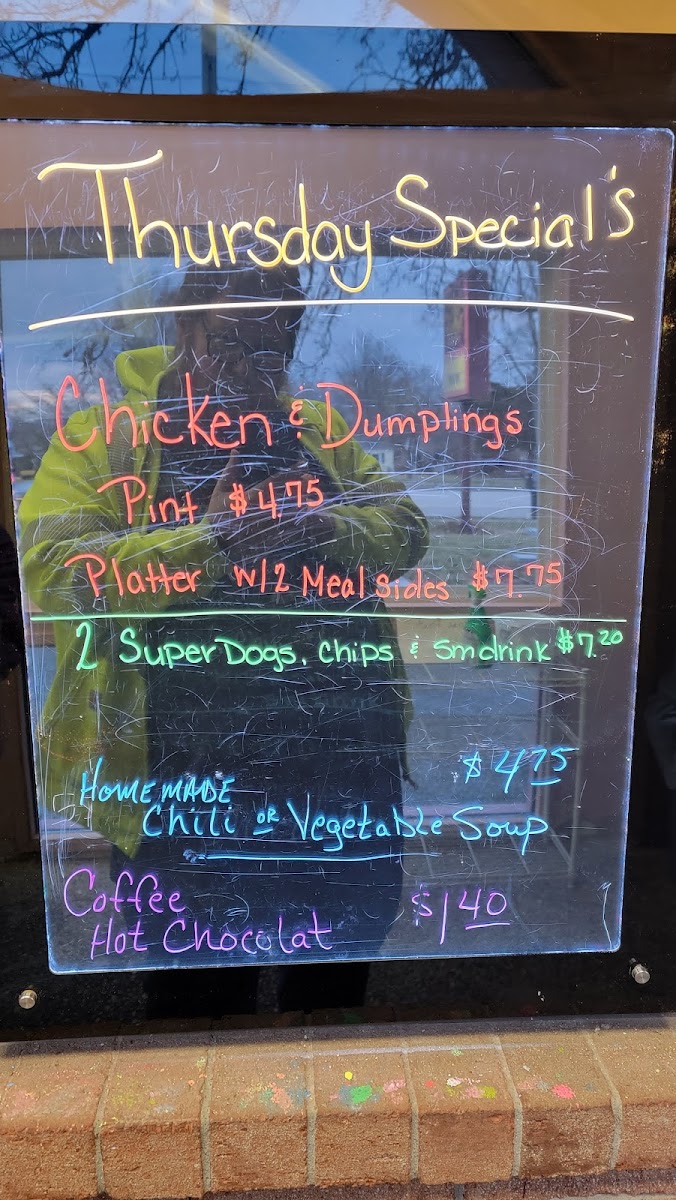 Thursday Special's
Chicken & Dumplings
Pint $4.75
Platter w/2 Meal sides $7.75
2 Super Dogs, Chips & Sm drink $7.20
$4.75
HOMEMADE
Chili or Vegetable Soup
Coffee
Hot Chocolat $1.40